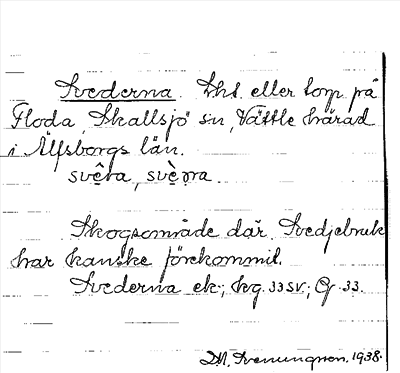 Svederna. Lhs. eller torp på
Floda, Skallsjö sn, Vättle härad
i Älfsborgs län.
svę̂ra, svę̀ṇa.
Skogsområde där Svedjebruk
har kanske förekommit.
Svederna ek; hg. 33 SV; Gf 33.
M. Svenungsson. 1938.